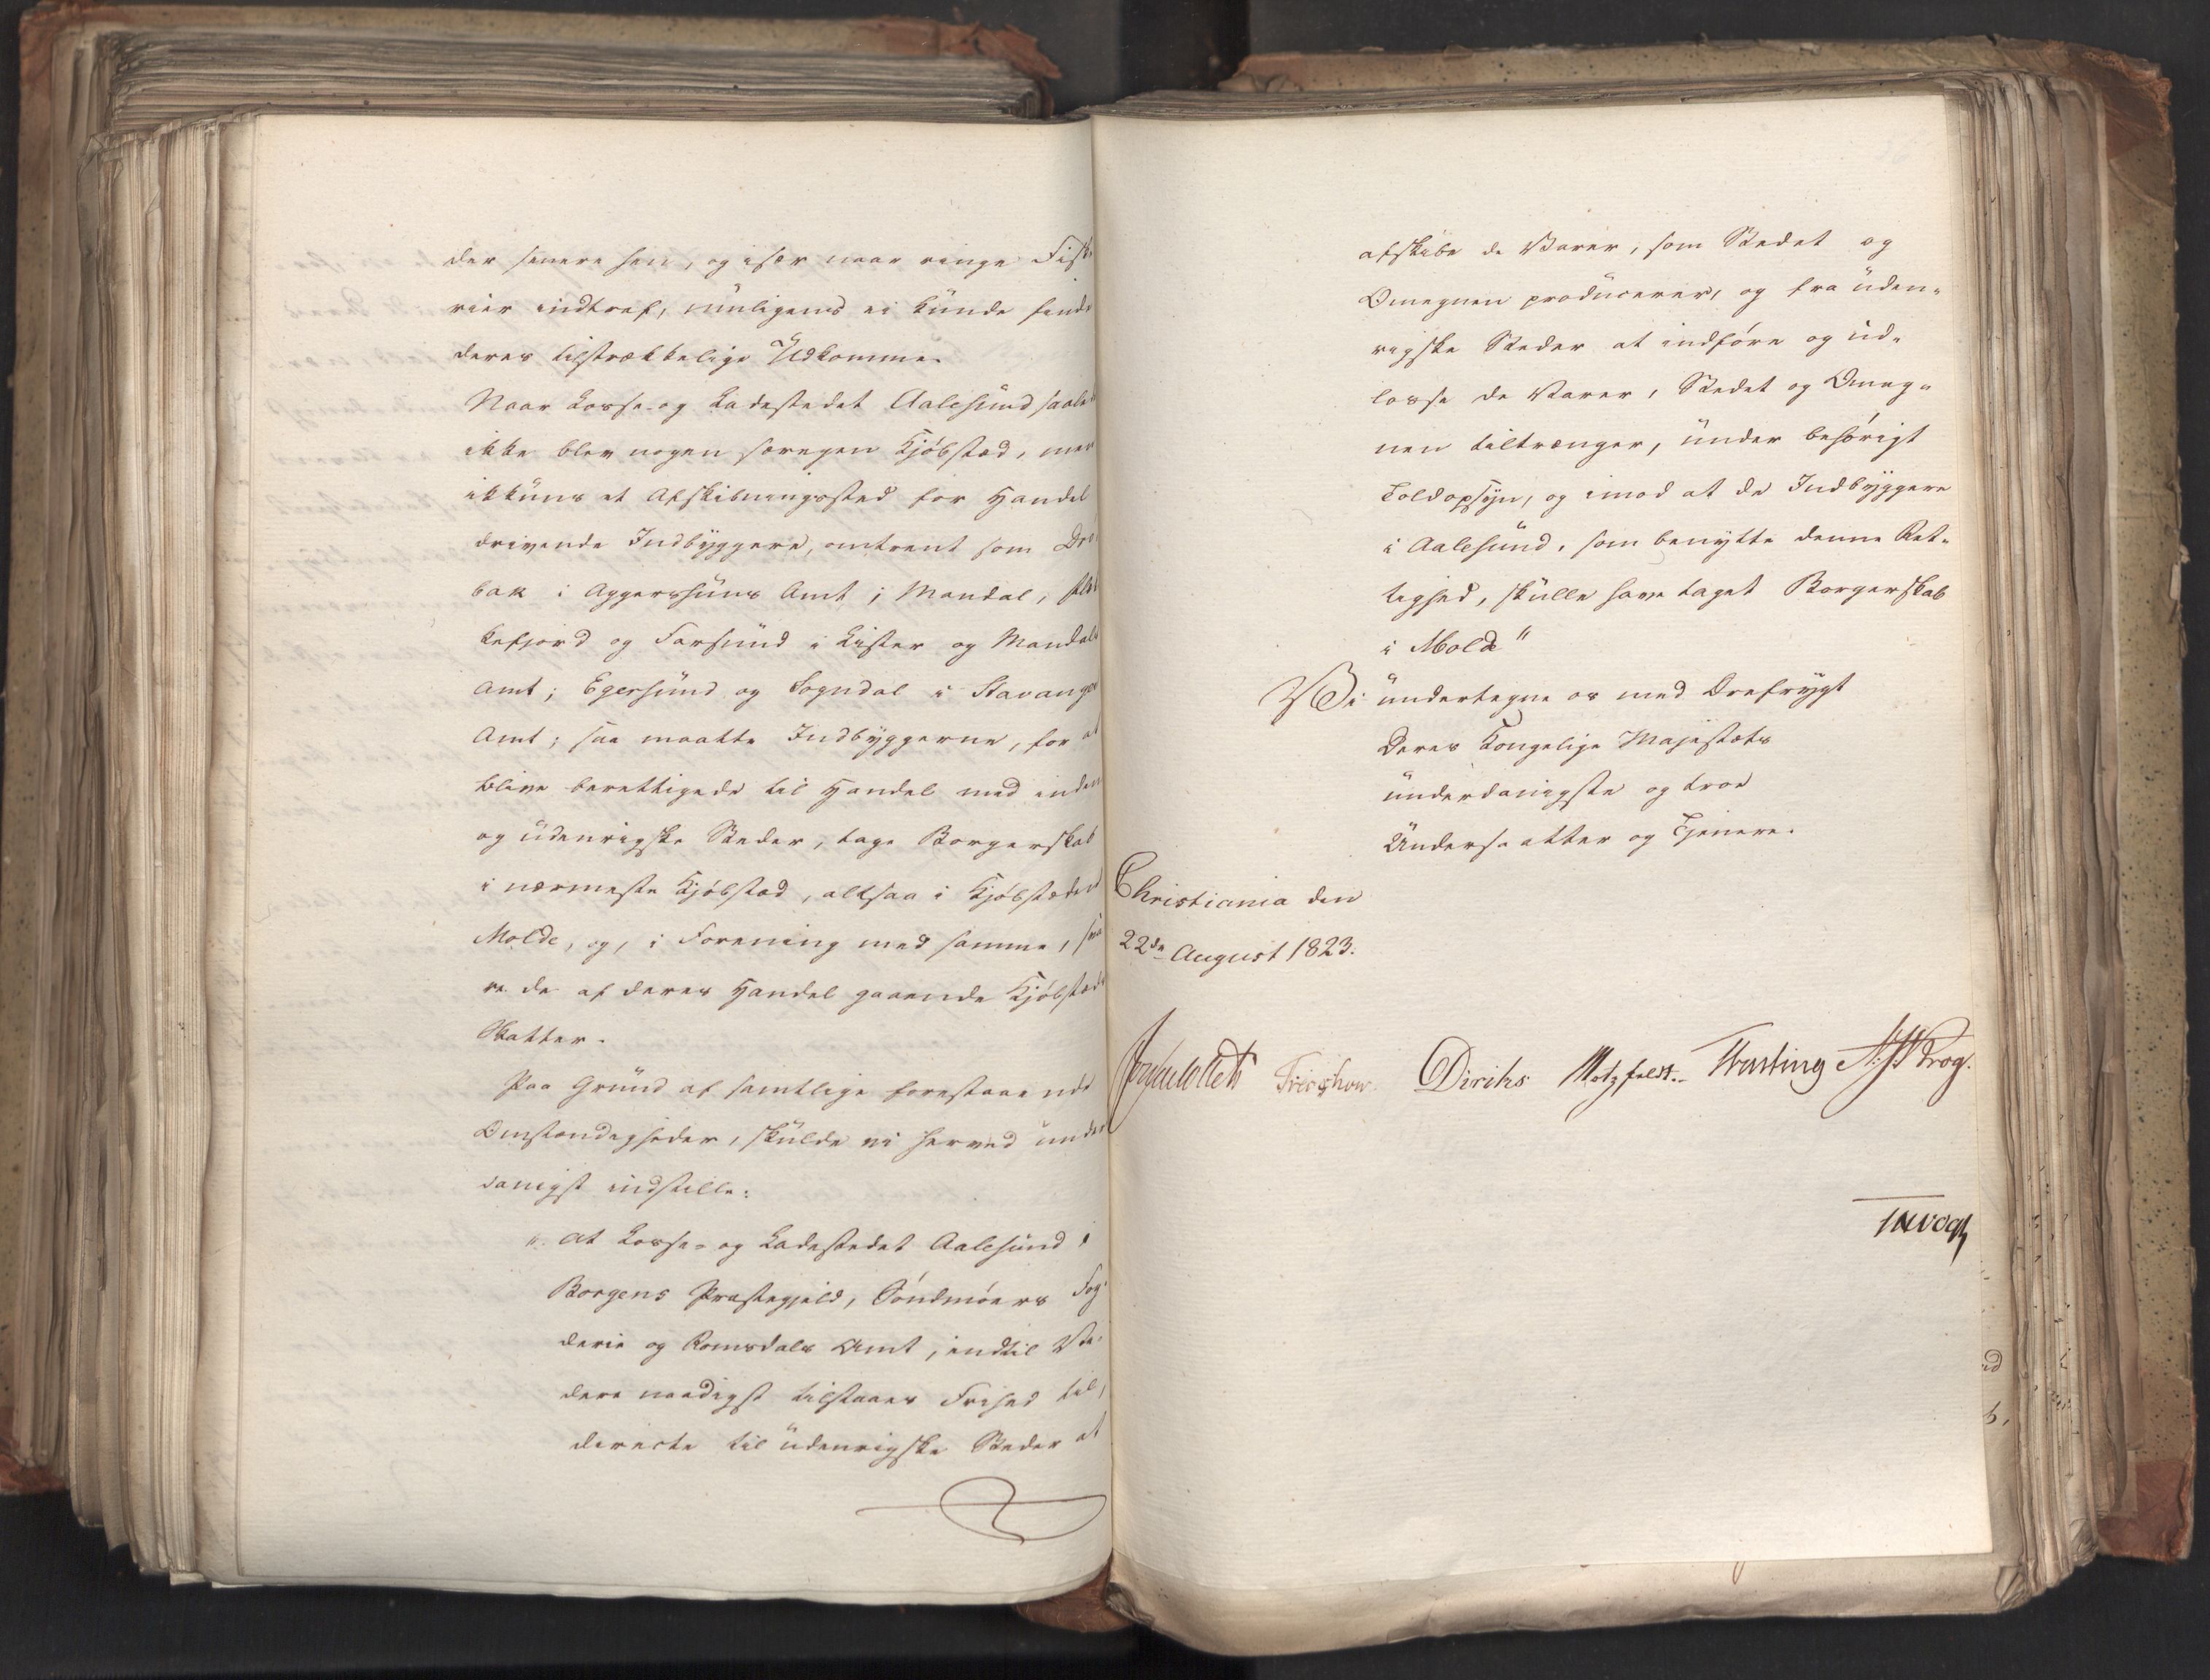 der senere hen, og især naar ringe Fiske
rier indtraf, muligens ei kunde finde
deres tilstrækkelige Udkomme.
Naar Losse- og Ladestedet Aalesund saaled
ikke blev nogen særegen Kjøbstad, men
ikkuns et Afskibningssted for Handel
drivende Indbyggere, omtrent som Drö
bak i Aggershuus Amt; Mandal, Flek
kefjord og Farsund i Lister og Mandals
Amt; Egersund og Sogndal i Stavanger
Amt; saa maatte Indbyggerne, for at
blive berettigede til Handel med inden
og udenrigske Steder, tage Borgerskab
i nærmeste Kjøbstad, altsaa i Kjøbstaden
Molde, og, i Forening med samme, sva
re de af deres Handel gaaende Kjøbstads
Skatter.
Paa Grund af samtlige forestaaende
Omstændigheder, skulde vi herved under
danigst indstille:
"At Losse- og Ladestedet Aalesund i
Borgens Præstegjeld, Söndmöers Fog
derie og Romsdals Amt, indtil Vi-
dere naadigst tilstaaes Frihed til,
directe til udenrigske Steder at
afskibe de Varer, som Stedet og
Omegnen producerer, og fra uden-
rigske Steder at indföre og ud-
losse de Varer, Stedet og Omeg-
nen tiltrænger, under behörigt
Toldopsyn, og imod at de Indbyggere
i Aalesund, som benytte denne Ret-
tighed, skulle have taget Borgerskab
i Molde"
Vi undertegne os med Ærefrygt
Deres Kongelige Majestæts
underdanigste og troe
Undersaatter og Tjenere.
Christiania den
22de August 1823.
Treschow. Diriks Motzfeldt. Fasting A: Krog.